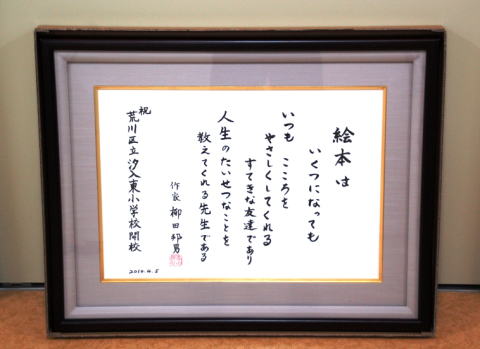 絵本は
いくつになっても
いつも こころを
やさしくしてくれる
すてきな友達であり
人生のたいせつなことを
教えてくれる先生である
作家 柳田邦男
祝
荒川区立汐入東小学校開校
2010.4.5